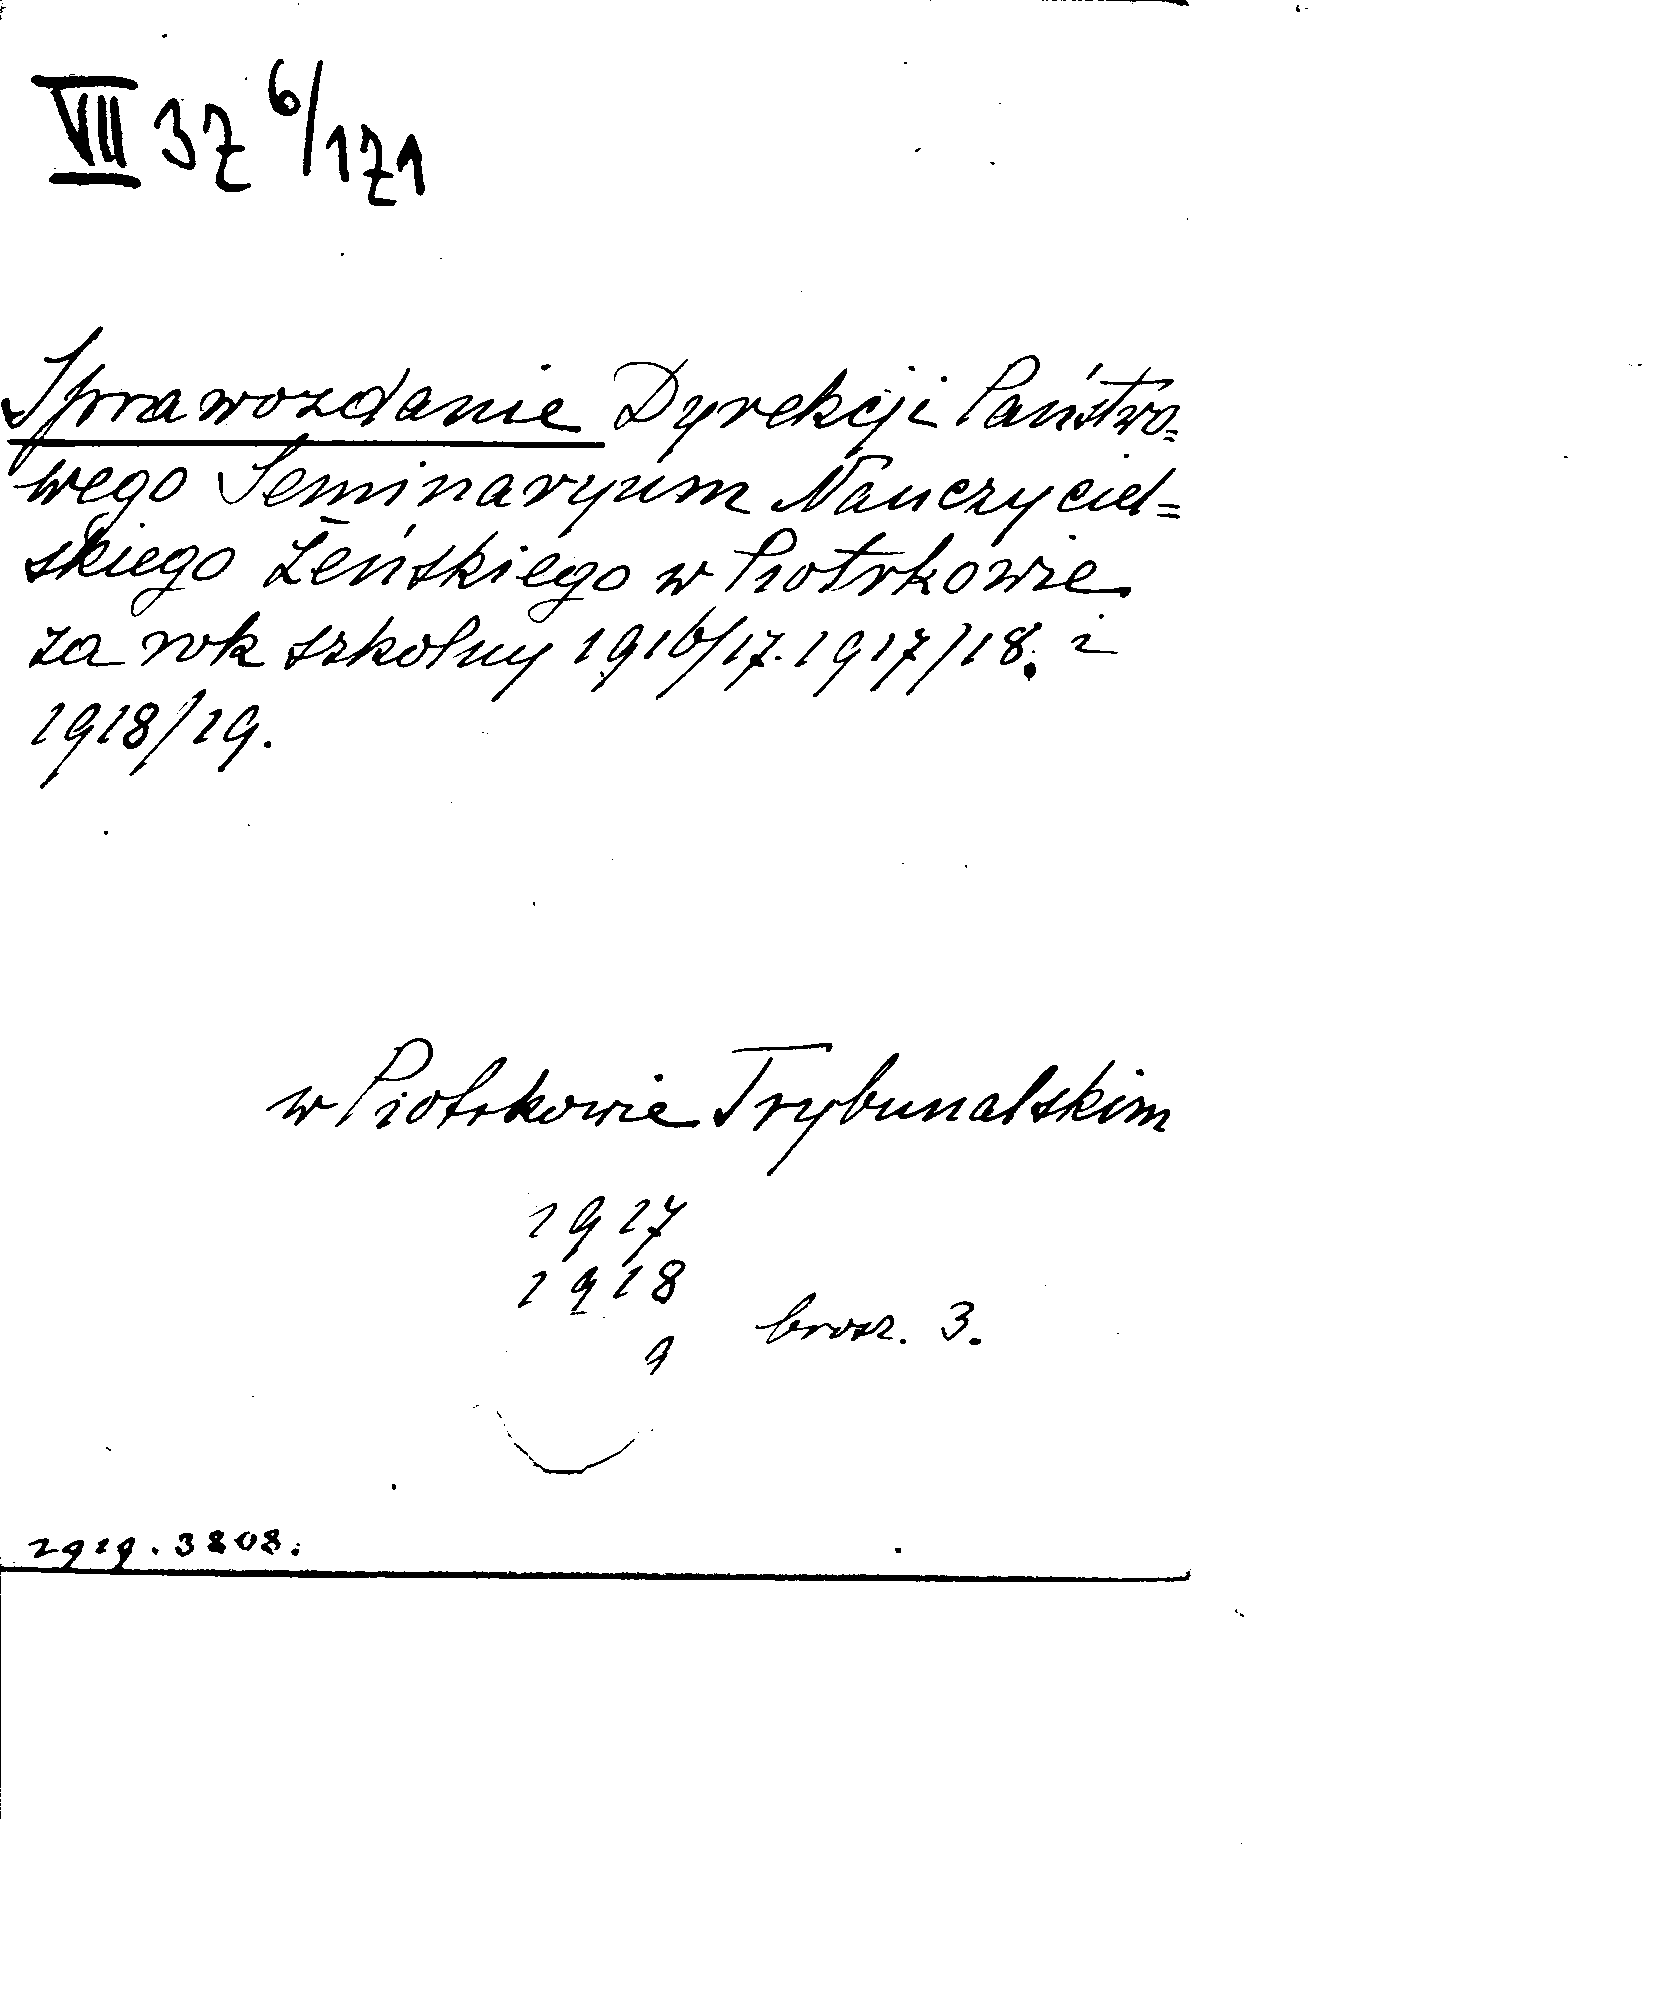 VII 37 6/171
Sprawozdanie Dyrekcji Państwo=
wego Seminaryum Nauczyciel=
skiego Żeńskiego w Piotrkowie
za rok szkolny 1916/17. 1917/18. i
1918/19.
w Piotrkowie Trybunalskim
1917
1918
9
brosz. 3.
1919. 3808.